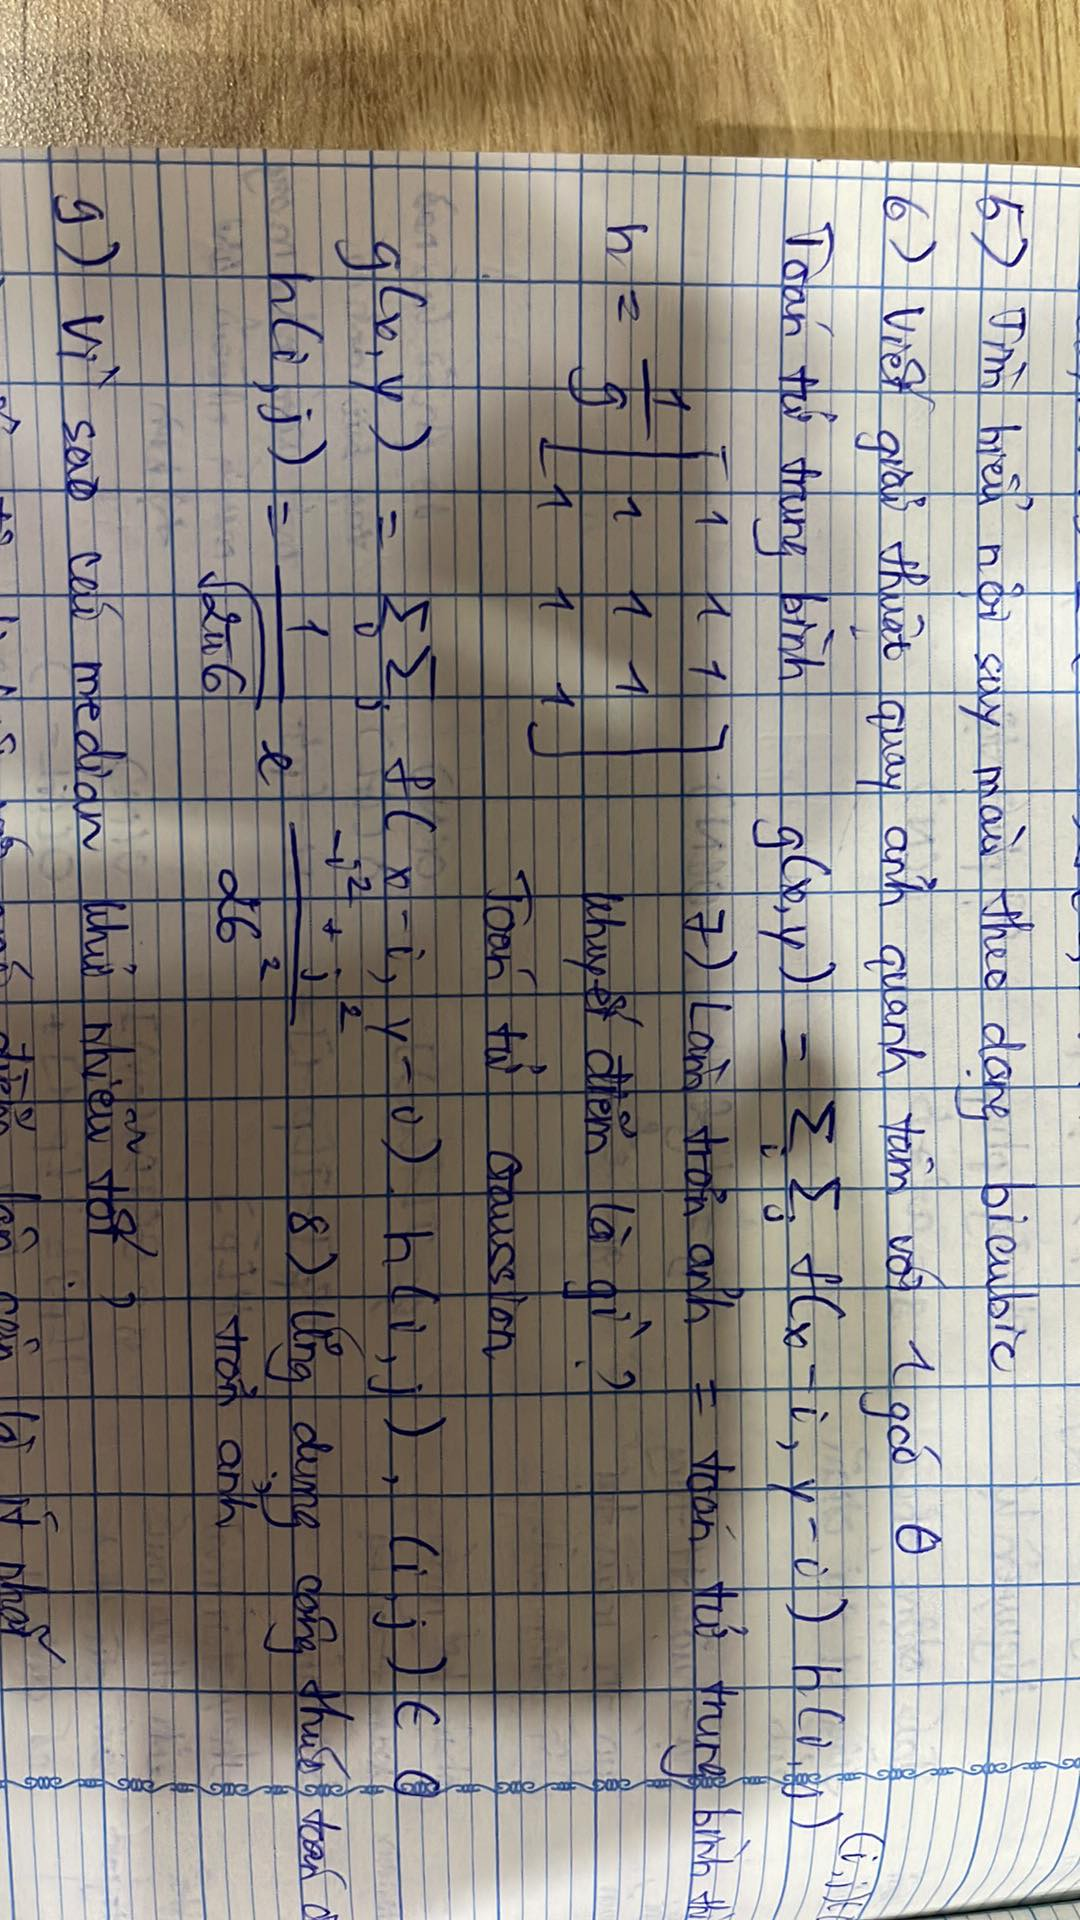 5) Tìm hiểu nội suy màu theo dạng bicubic
6) Viết giải thuật quay ảnh quanh tâm với 1 góc θ
Toán tử trung bình g(x,y) = Σi Σj f(x-i, y-j) h(i,j) (i,j)∈
h = 1/9 [1 1 1
1 1 1
1 1 1]
7) Làm trơn ảnh = toán tử trung bình thì
khuyết điểm là gì?
Toán tử Gaussian
g(x,y) = Σi Σj f(x-i, y-j). h(i,j), (i,j) ∈ O
h(i,j) = 1/√2πσ e -i² + j² / 2σ²
8) Ứng dụng công thức toán
trơn ảnh
9) Vì sao các median khử nhiễu tốt?